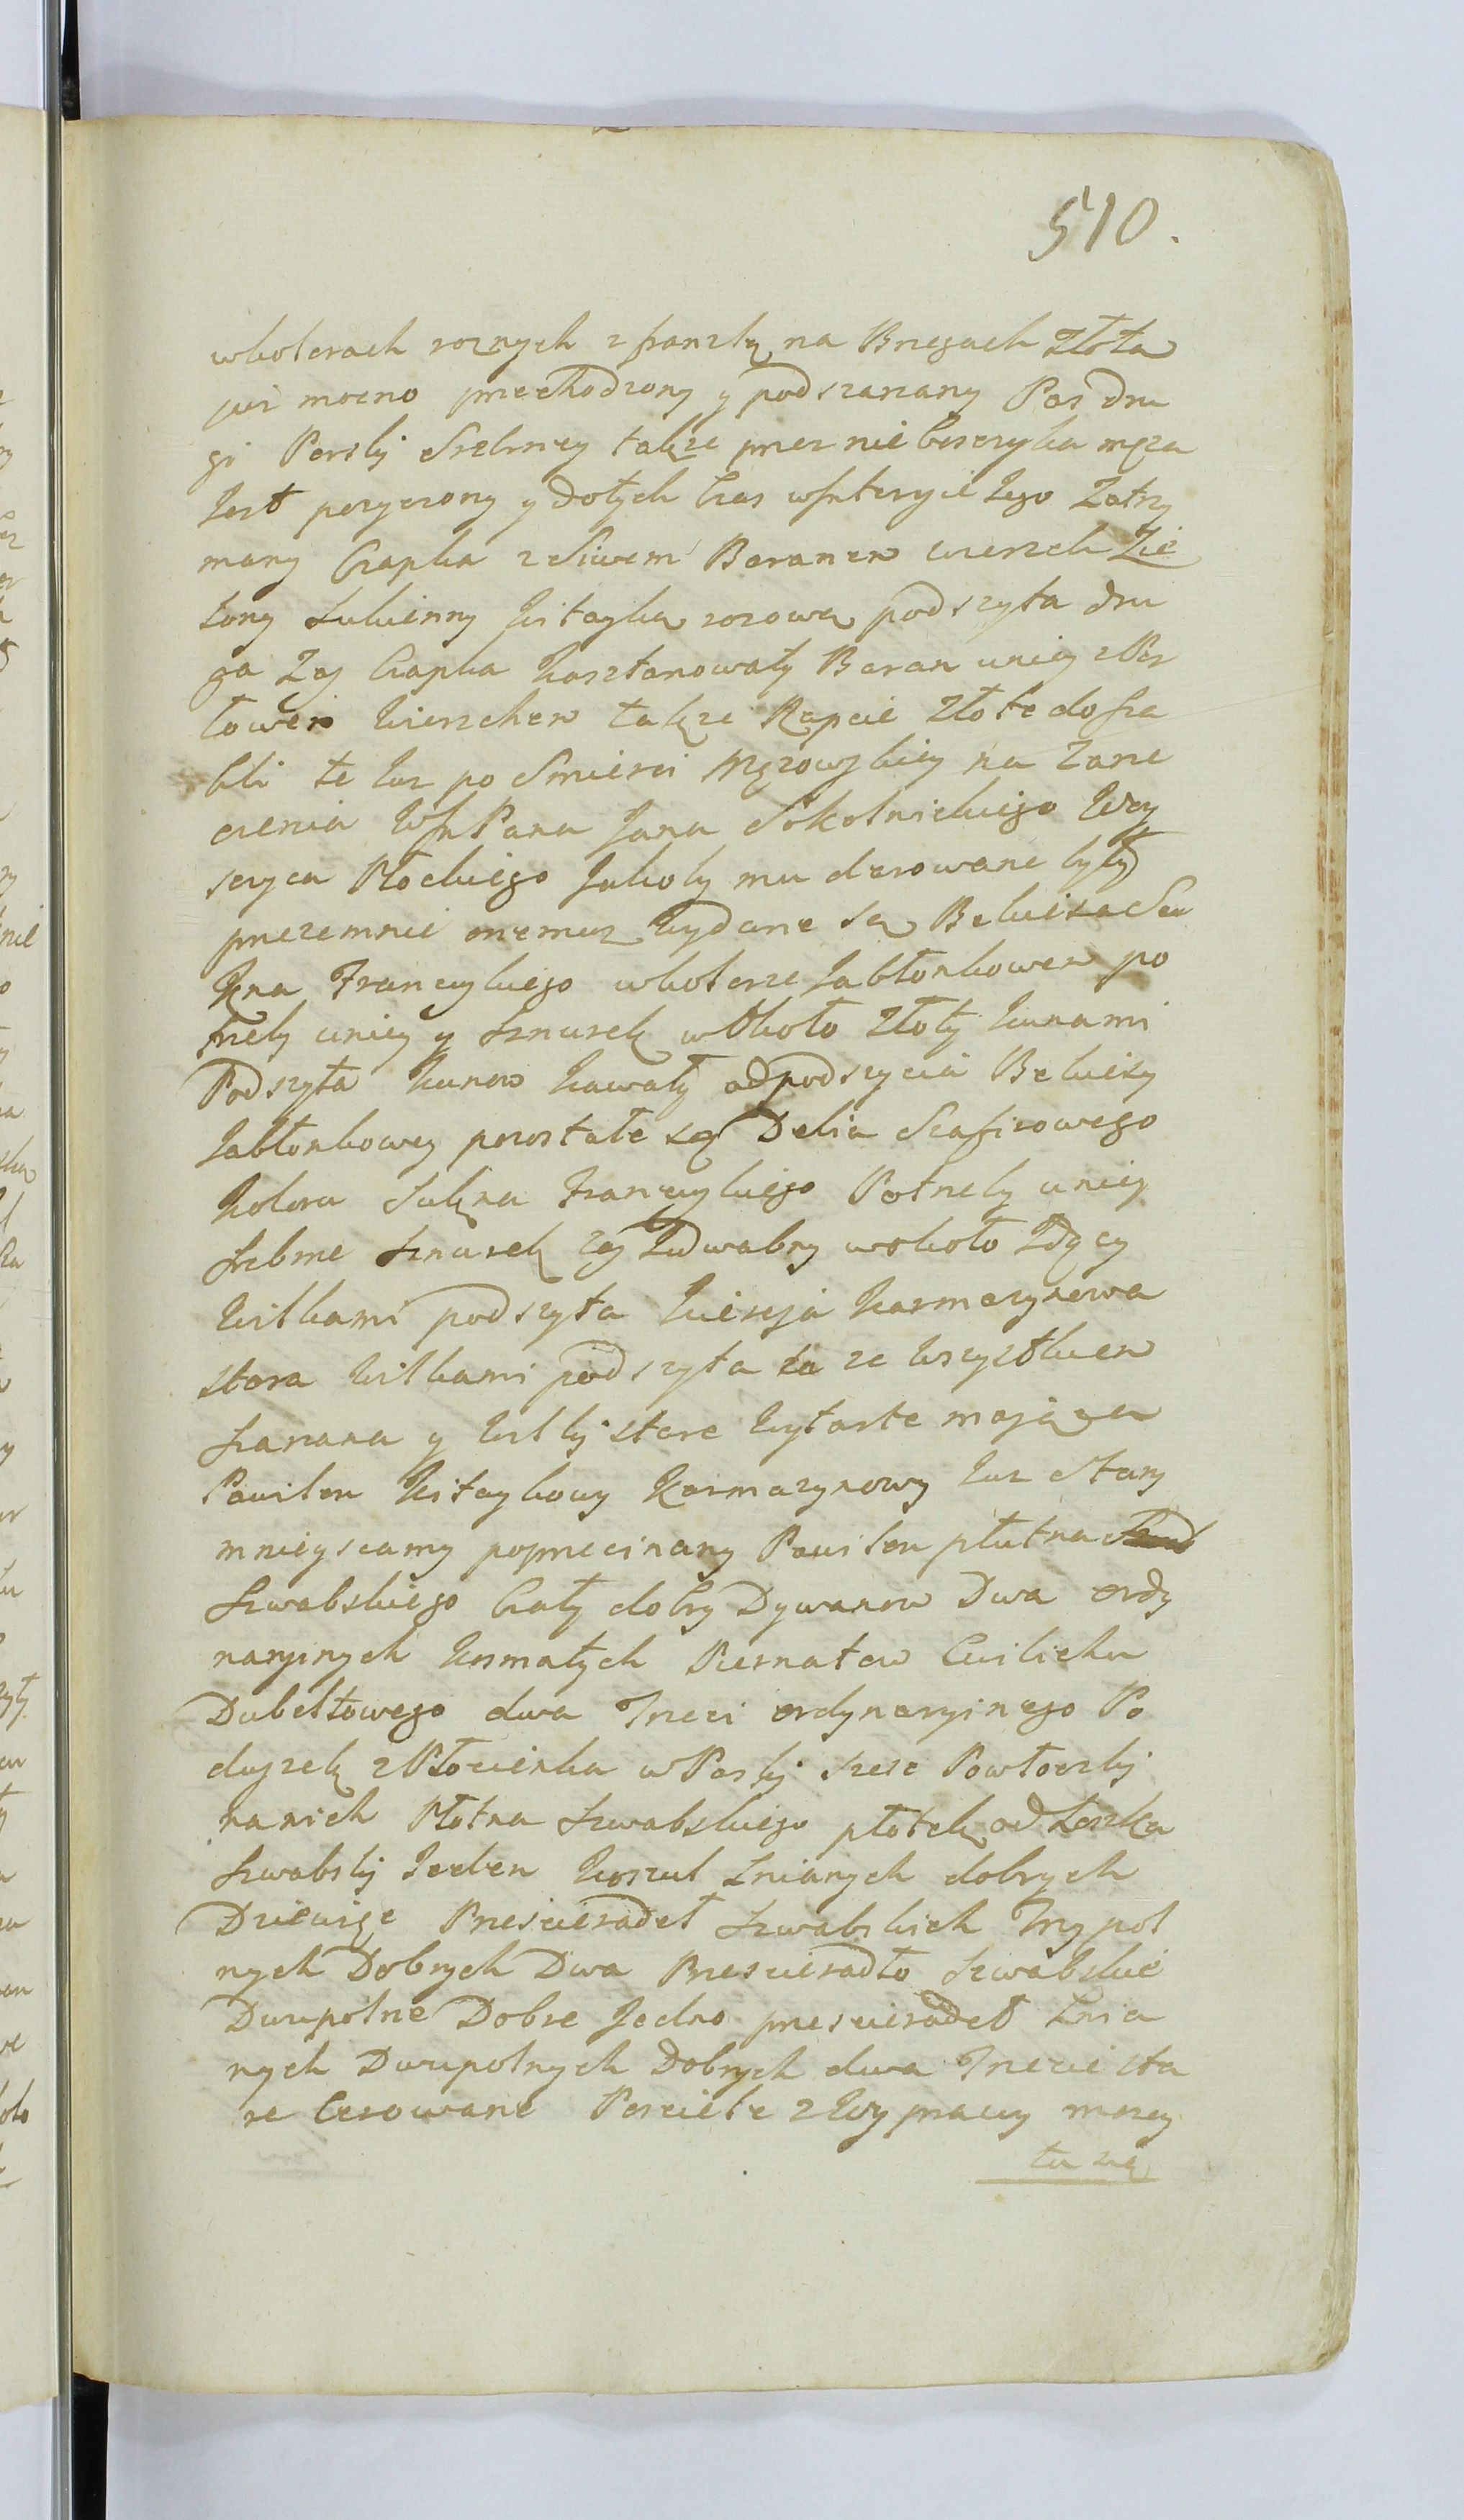 510.
wkolerach roznych z franzlą na Brzegach Złota
juz mocno przechodzony y podszarzany Pas dru
gi Perski Srebrney także przez nieboszczyka męza
Jest pozyczony y dotych Czas w Jego Zatrzy
many Czapka z Siwem Baranem wierzch Zie
lony Sukienny kitayką rozową podszyta dru
ga Zaś Czapka kasztanowaty Baran uniey z Per
łowem Wierzchem także Rapcie złote do Sza
bli te Juz po Smierci Męzowskiey na zale
cenia Pana Jana Sokolnickiego
Płockiego Jakoby mu darowane były
przezemnie onemuz wydane są Bekiesza Su
kna Francuskiego wkolerze Jabłonkowem po
trzeby uniey y Sznurek wokoło złoty kunami
Podszyta kunow kawały odpodszycia Bekieszy
Jabłonkowey pozostałe są Delia Szafirowego
koloru Sukna Francuskiego Potrzeby uniey
Srebrne Sznurek zaś Jedwabny wokoło Idący
Wilkami podszyta kiereja karmazynowa
stara Wilkami podszyta ta ze wszystkiem
szarzana y Wilki stare wytarte mająca
Pawilon kitaykowy karmazynowy Juz Stary
mnieyscamy poprzecinany Pawilon płutna
Szwabskiego Cały dobry Dywanow Dwa ordy
naryinych kosmatych Piernatow Cwilichu
Dubeltowego dwa Trzeci ordynaryinego Po
duszek z Płocienka w Paski szesc Powłoczki
nanich Płotna Szwabskiego płotek od Łozka
Szwabski Jeden koszul lnianych dobrych
Dziewięc Przescieradeł Szwabskich Trzypol
nych Dobrych Dwa Przescieradło Szwabskie
Dwupolne Dobre Jedno przescieradeł Lnia
nych Dwupolnych Dobrych dwa Trzecie sta
re Cerowane Posciele z Wyprawy moiey